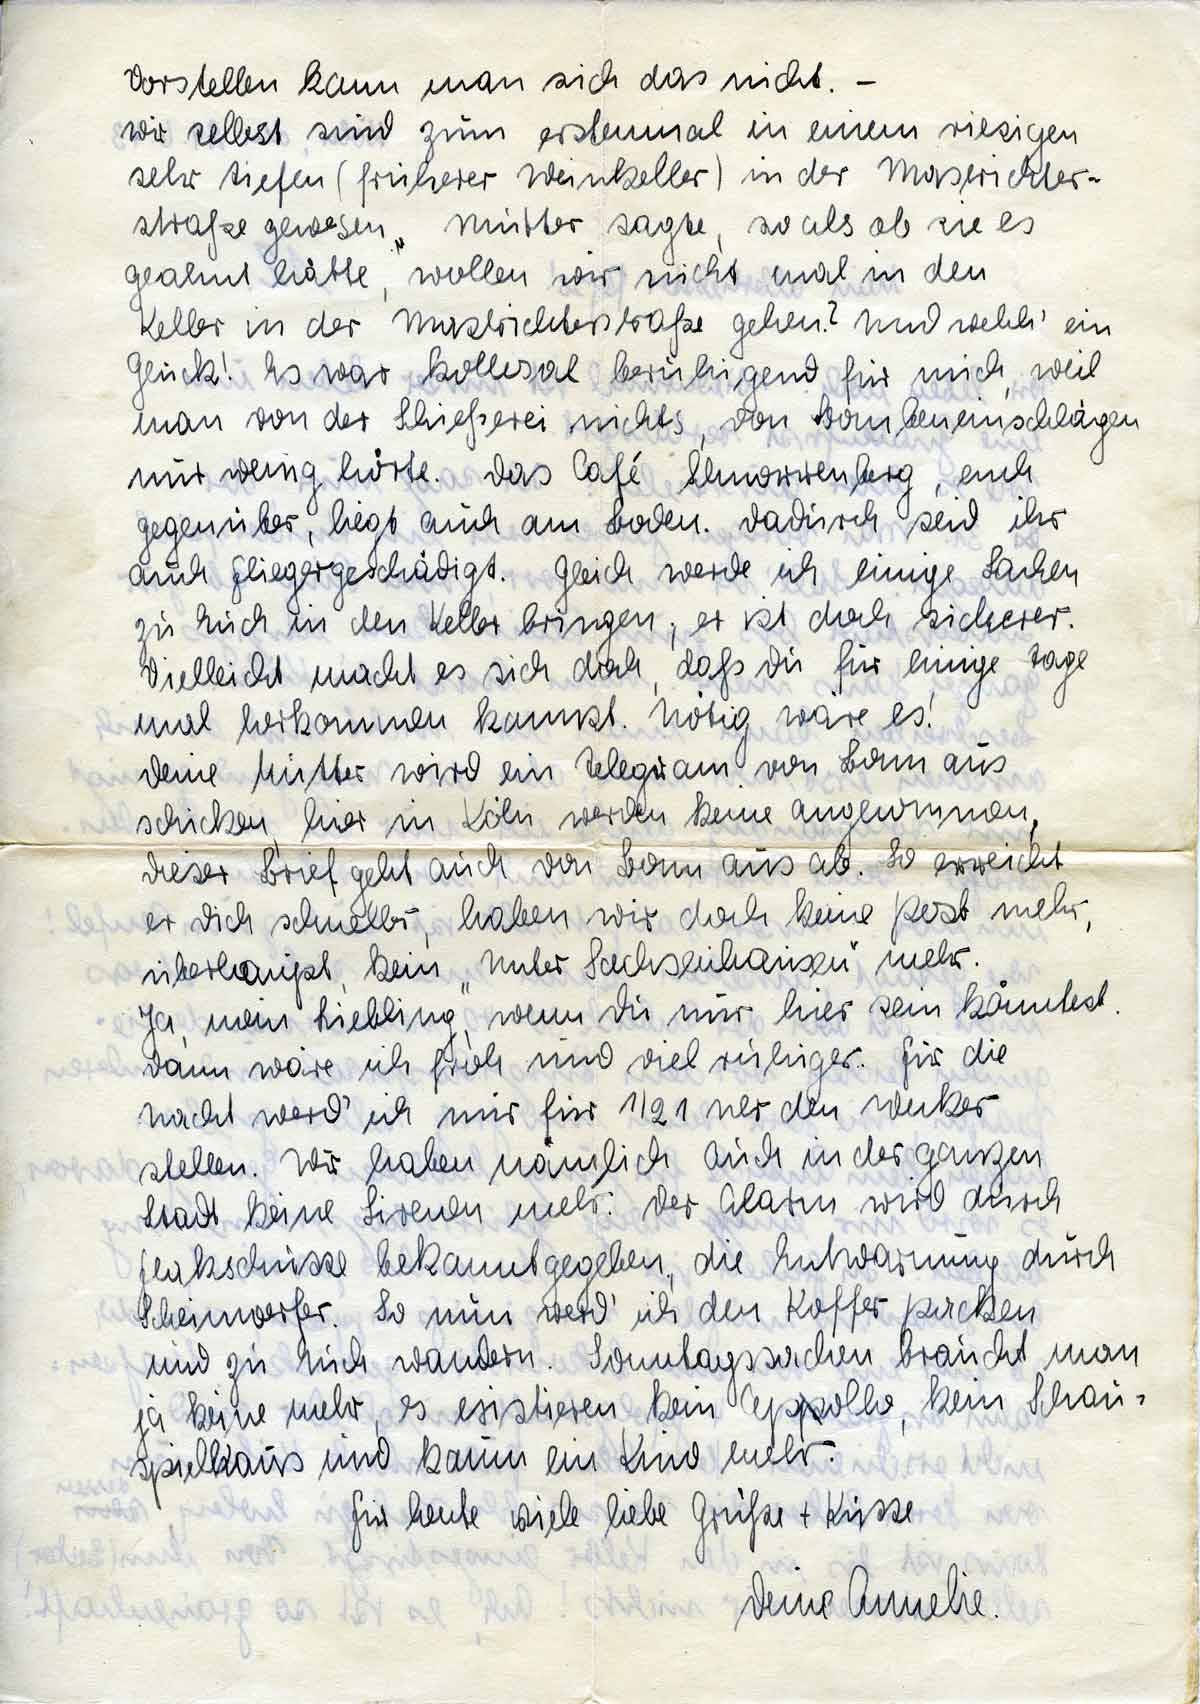 Vorstellen kann man sich das nicht. –
Wir selbst sind zum erstenmal in einem riesigen
sehr tiefen (früherer Weinkeller) in der Mastrichter-
straße gewesen. Mutter sagte, so als ob sie es
geahnt hätte, "wollen wir nicht mal in den
Keller in der Mastrichterstraße gehen? Und welch' ein
Glück! Es war kollosal beruhigend für mich, weil
man von der Schießerei nichts, von Bombeneinschlägen
nur wenig hörte. Das Café Schnorrenberg, euch
gegenüber, liegt auch am Boden. Dadurch seid ihr
auch fliegergeschädigt. Gleich werde ich einige Sachen
zu Euch in den Keller bringen, er ist doch sicherer.
Vielleicht macht es sich doch, daß Du für einige Tage
mal herkommen kannst. Nötig wäre es!
Deine Mutter wird ein Telegram von Bonn aus
schicken, hier in Köln werden keine angenommen,
dieser Brief geht auch von Bonn aus ab. So erreicht
er Dich schneller, haben wir doch keine Post mehr,
überhaupt kein "Unter Sachsenhausen" mehr.
Ja, mein Liebling, wenn Du nur hier sein könntest.
Dann wäre ich froh und viel ruhiger. Für die
Nacht werd' ich mir für 1/2 1 Uhr den Wecker
stellen. Wir haben nämlich auch in der ganzen
Stadt keine Sirenen mehr. Der Alarm wird durch
Flakschüsse bekanntgegeben, die Entwarnung durch
Scheinwerfer. So nun werd' ich den Koffer packen
und zu Euch wandern. Sonntagssachen braucht man
ja keine mehr, es existieren kein Appollo, kein Schau-
spielhaus und kaum ein Kino mehr.
Für heute viele liebe Grüße + Küsse
Deine Annelie.